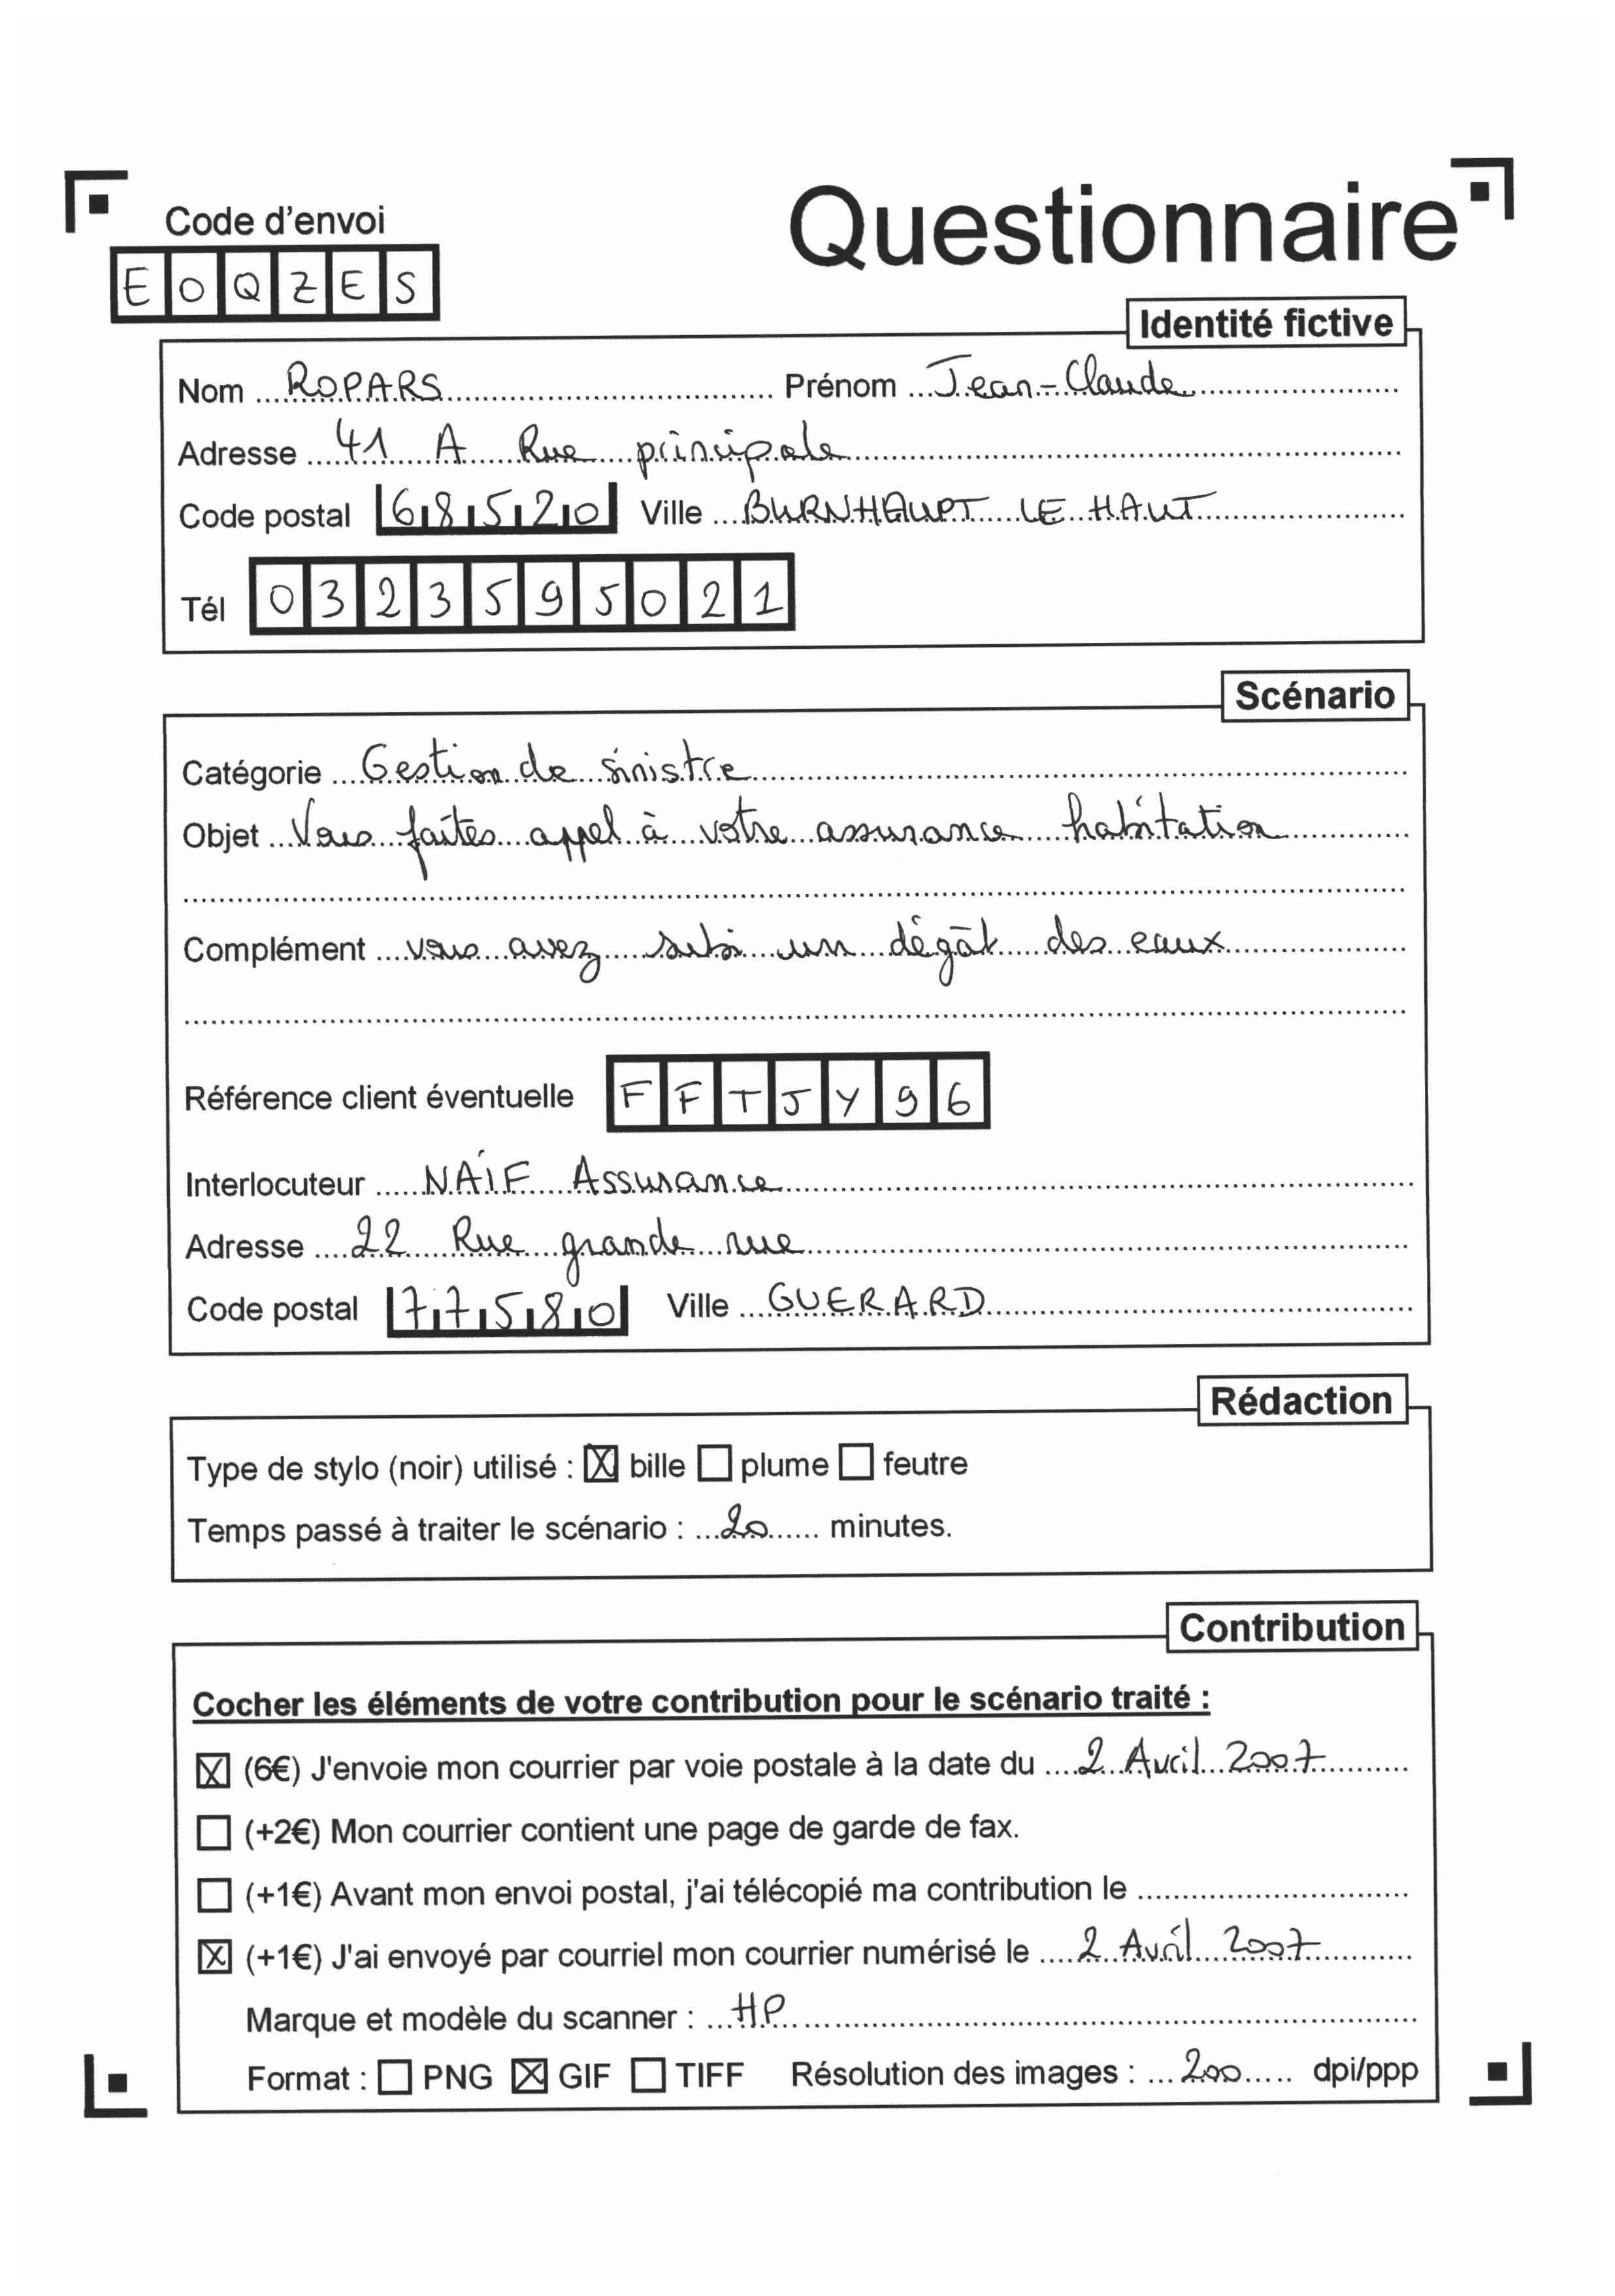 Questionnaire
Code d'envoi
EOQZES
Identité fictive
Nom ROPARS Prénom Jean-Claude
Adresse 41 A Rue principale
Code postal 68520 Ville BURNHAUPT LE HAUT
Tél 0323595021
Scénario
Catégorie Gestion de sinistre
Objet Vous faîtes appel à votre assurance habitation
Complément vous avez subi un dégât des eaux
Référence client éventuelle FFTJY96
Interlocuteur NAÏF Assurance
Adresse 22 Rue grande rue
Code postal 77580 Ville GUERARD
Rédaction
Type de stylo (noir) utilisé : ☒ bille ☐ plume ☐ feutre
Temps passé à traiter le scénario : 20 minutes.
Contribution
Cocher les éléments de votre contribution pour le scénario traité :
☒ (6€) J'envoie mon courrier par voie postale à la date du 2 Avril 2007
☐ (+2€) Mon courrier contient une page de garde de fax.
☐ (+1€) Avant mon envoi postal, j'ai télécopié ma contribution le
☒ (+1€) J'ai envoyé par courriel mon courrier numérisé le 2 Avril 2007
Marque et modèle du scanner : HP
Format : ☐ PNG ☒ GIF ☐ TIFF Résolution des images : 200 dpi/ppp